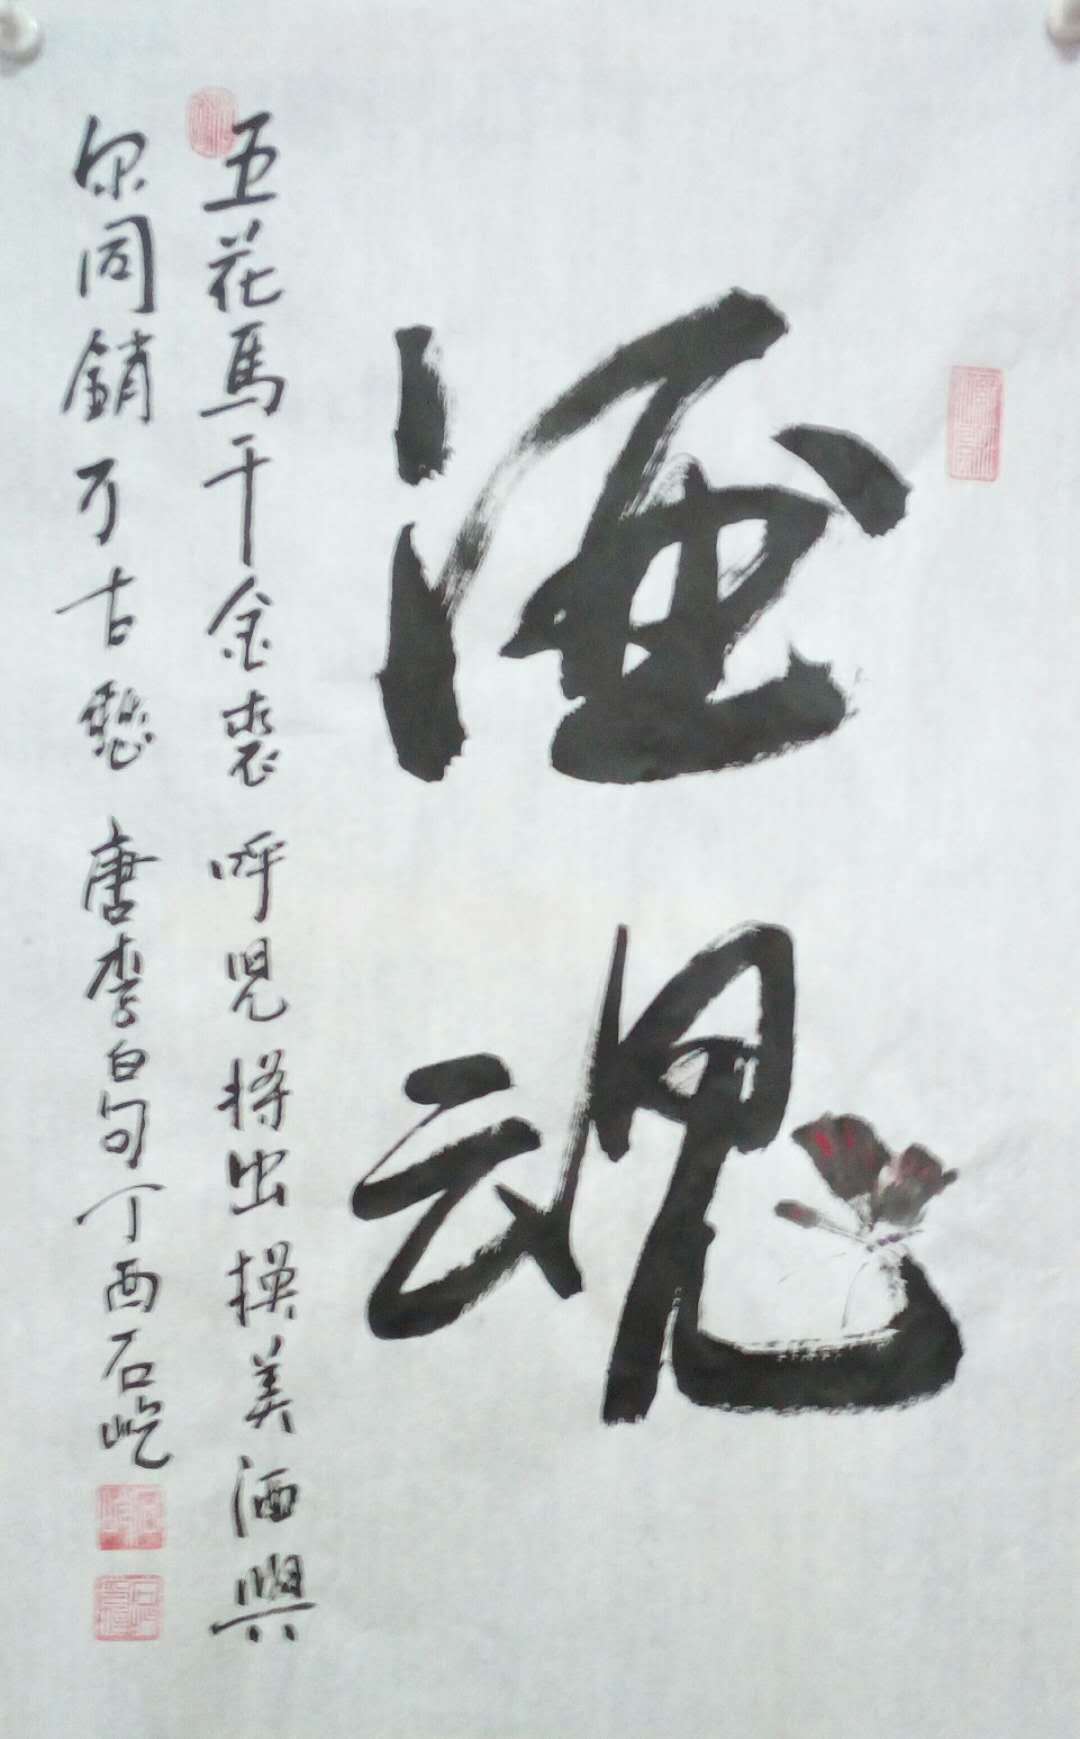 酒魂
五花馬千金裘呼児将出換美酒與
尔同銷万古愁唐李白句丁酉石屹